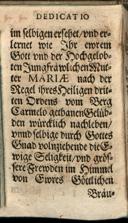 DEDICATIO
im selbigen ersehet / vnd er-
lernet wie Ihr ewrem
Gott vnd der Hochgelob-
ten Jungfräwlichen Mut-
ter MARIÆ nach der
Regel ihres Heiligen drit-
ten Ordens vom Berg
Carmelo gethanen Gelüb-
den würcklich nachleben /
vnnd selbige durch Gottes
Gnad volnziehend die E-
wige Seligkeit / vnd gröss-
sere Frewden im Himmel
von Ewres Göttlichen
Bräu-